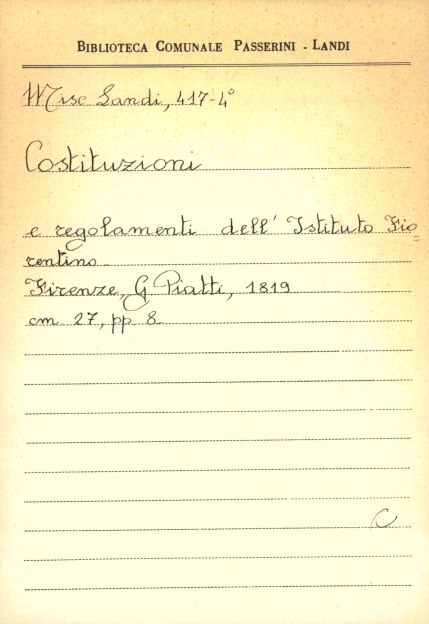 BIBLIOTECA COMUNALE PASSERINI - LANDI
Misc Landi, 417-4°
Costituzioni
e regolamenti dell' Istituto Fio=
rentino
Firenze, G. Piatti, 1819
cm. 27, pp. 8
C